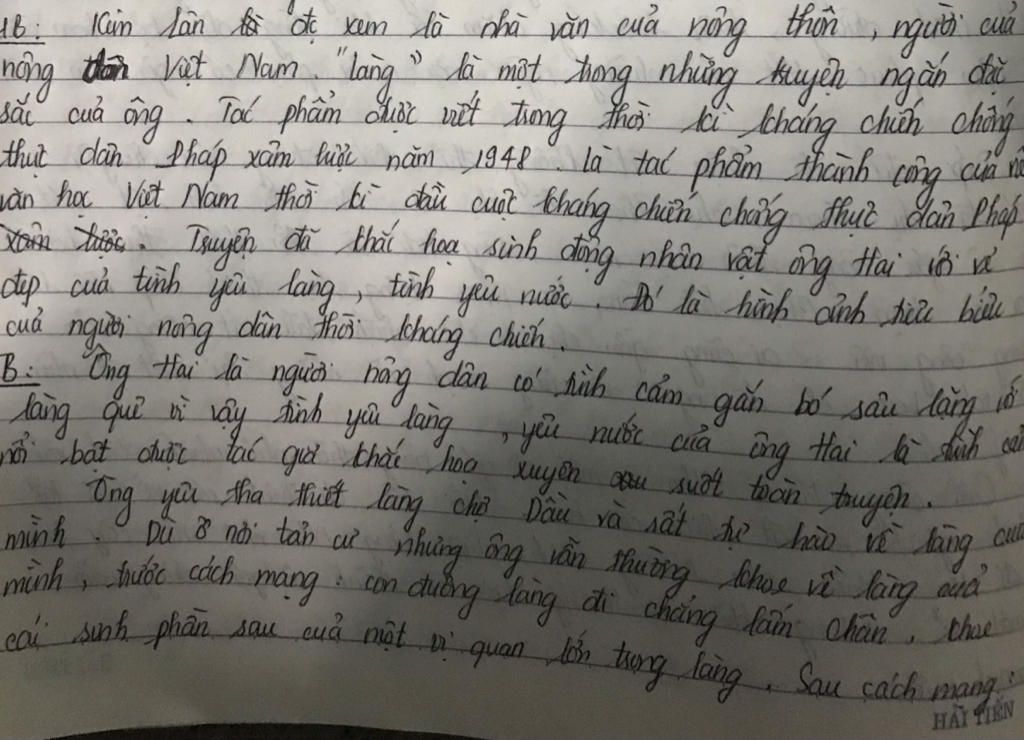 HB: Kim Lân là đc xem là nhà văn của nông thôn, người của
nông dân Việt Nam. "Làng" là một trong những truyện ngắn đặc
sắc của ông. Tác phẩm được viết trong thời kì kháng chiến chống
thực dân Pháp xâm lược năm 1948. là tác phẩm thành công của nề
văn học Việt Nam thời kì đầu cuộc kháng chiến chống thực dân Pháp
xâm lược. Truyện đã khắc hoạ sinh động nhân vật ông Hai với vẻ
đẹp của tình yêu làng, tình yêu nước. Đó là hình ảnh tiêu biểu
của người nông dân thời kháng chiến.
B: Ông Hai là người nông dân có tình cảm gắn bó sâu lặng với
làng quê vì vậy tình yêu làng, yêu nước của ông Hai là tình cả
nổi bật được tác giả khắc hoạ xuyên suốt toàn truyện.
Ông yêu tha thiết làng chợ Dầu và rất tự hào về làng của
mình. Dù ở nơi tản cư nhưng ông vẫn thường khoe về làng của
mình, trước cách mạng: con đường làng đi chẳng lấm chân, khoe
cái sinh phần sau của một vị quan lớn trong làng. Sau cách mạng:
HẢI TIẾN